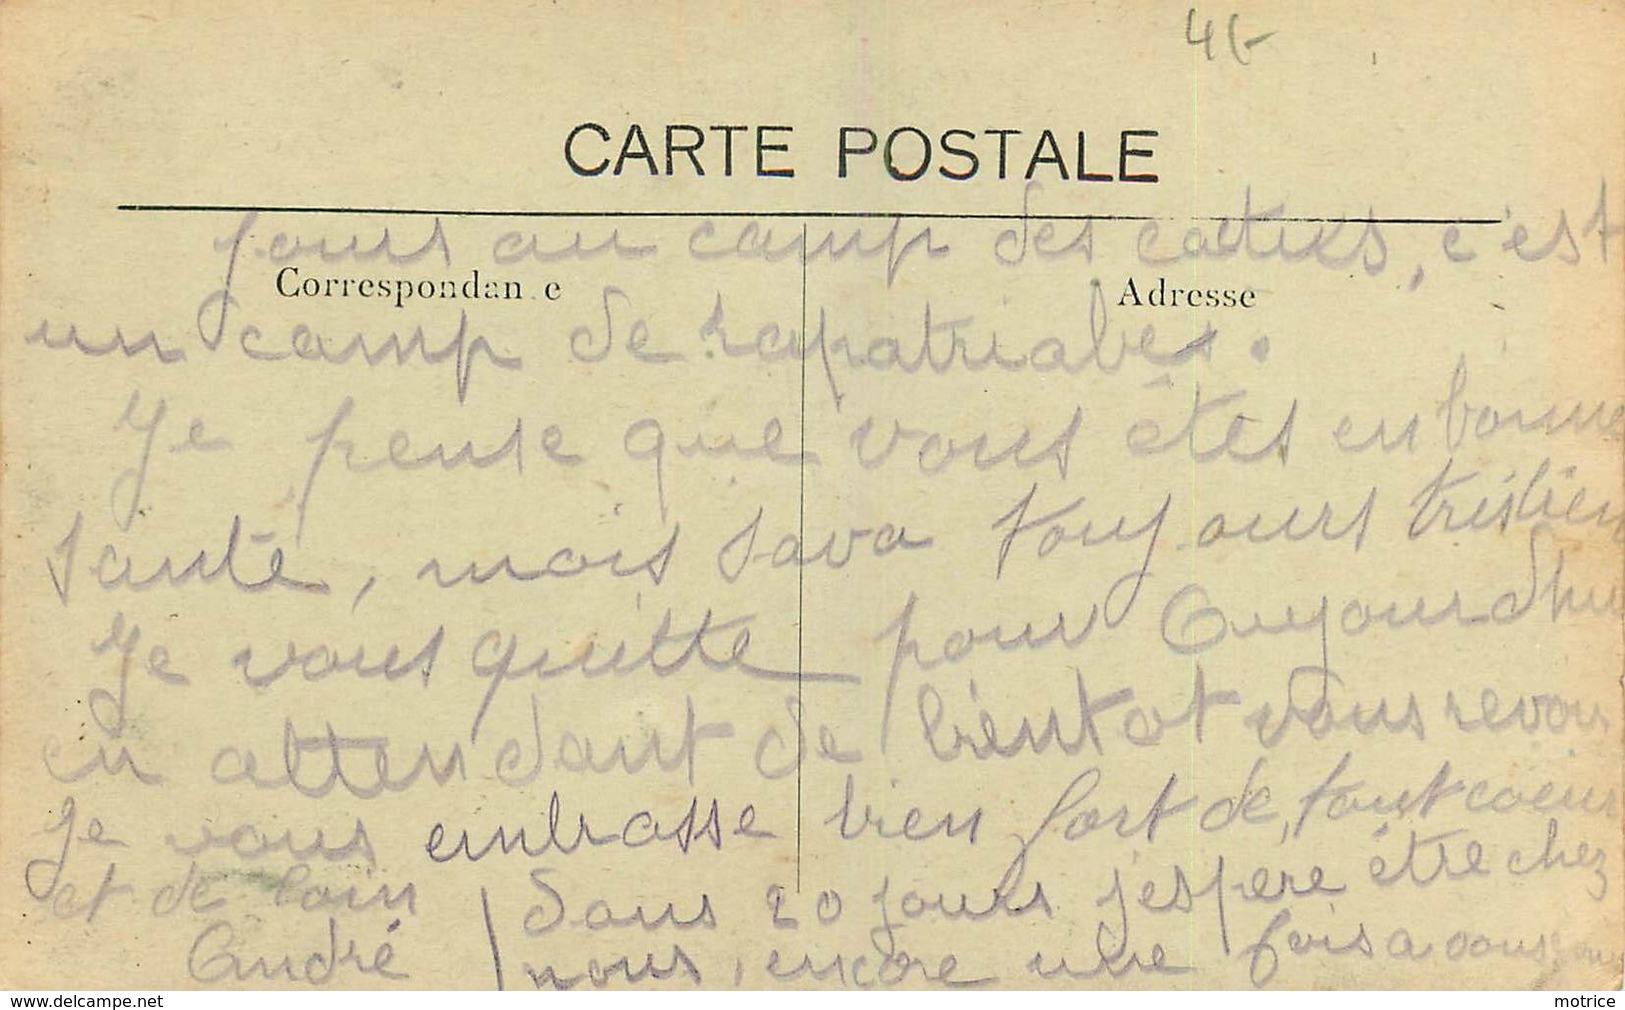 4 F
CARTE POSTALE
Correspondan e
Adresse
jours au camp des cactus, c'est
un camp de rapatriabes.
Je pense que vous êtes en bonne
santé, mois sava toujours très bien
Je vous quitte pour Aujourdhui
en attendant de bientot vous revoir
Je vous embrasse bien fort de tout coeur
et de loin
André
Dans 20 jours j'espère être chez
nous, encore une fois a vous
www.delcampe.net
motrice